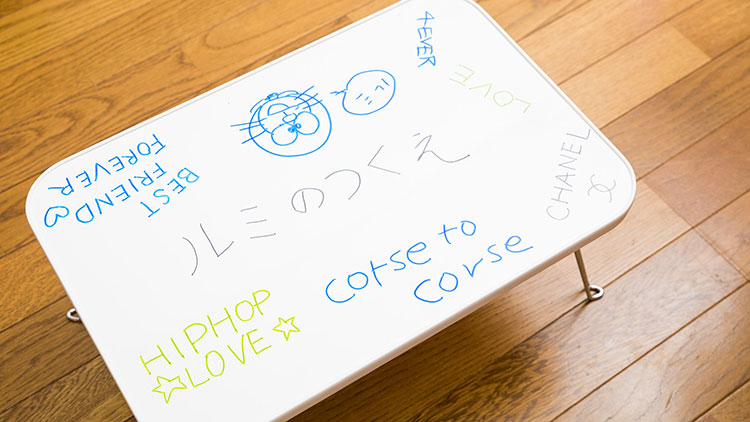 4EVER
LOVE
BEST
FRIEND
FOREVER
CHANEL
ルミのつくえ
corse to
corse
HIPHOP
LOVE